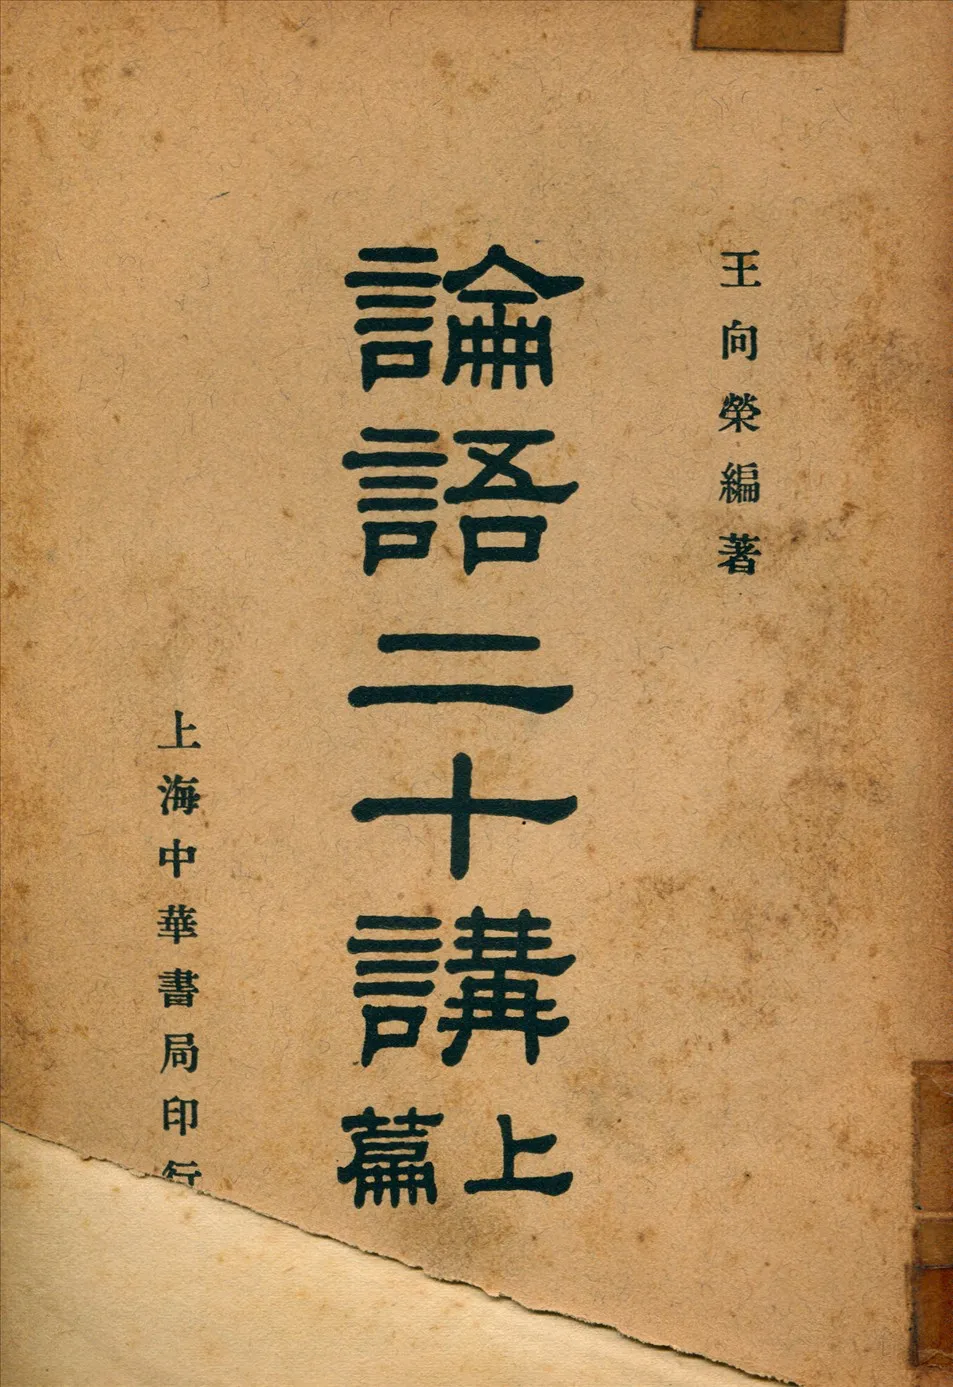 王向榮編著
論語二十講
上篇
上海中華書局印行